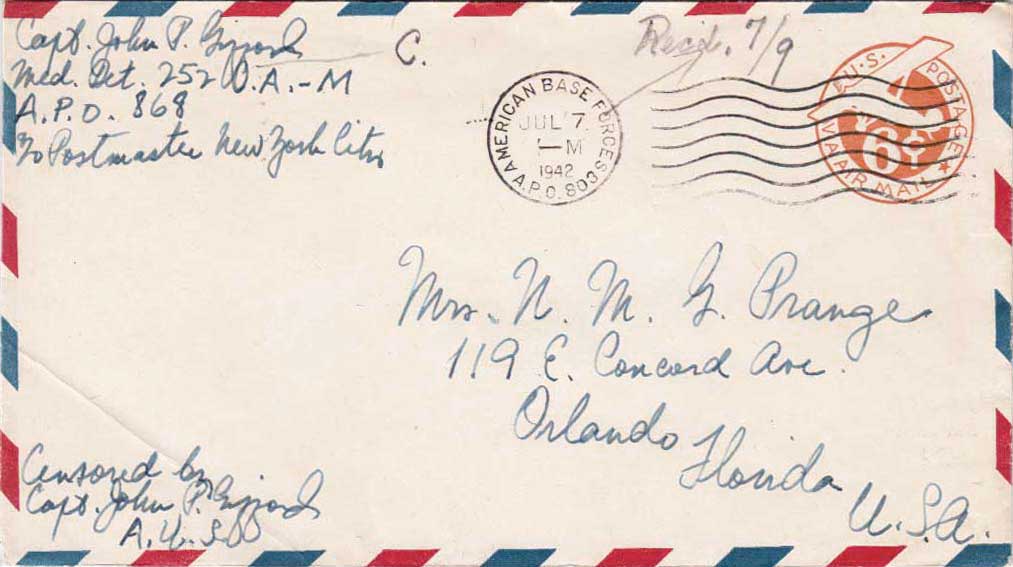 Capt. John P. Gifford
Med. Det. 252 D.A.-M
A.P.O. 868
℅ Postmaster New York City
C.
Rec'd. 7/9
AMERICAN BASE FORCES
JUL 7
1 — M
1942
A.P.O. 803
U.S. POSTAGE
6¢
VIA AIR MAIL
Mrs. N. M. G. Prange
119 E. Concord Ave.
Orlando
Florida
U.S.A.
Censored by
Capt. John P. Gifford
A.U.S.